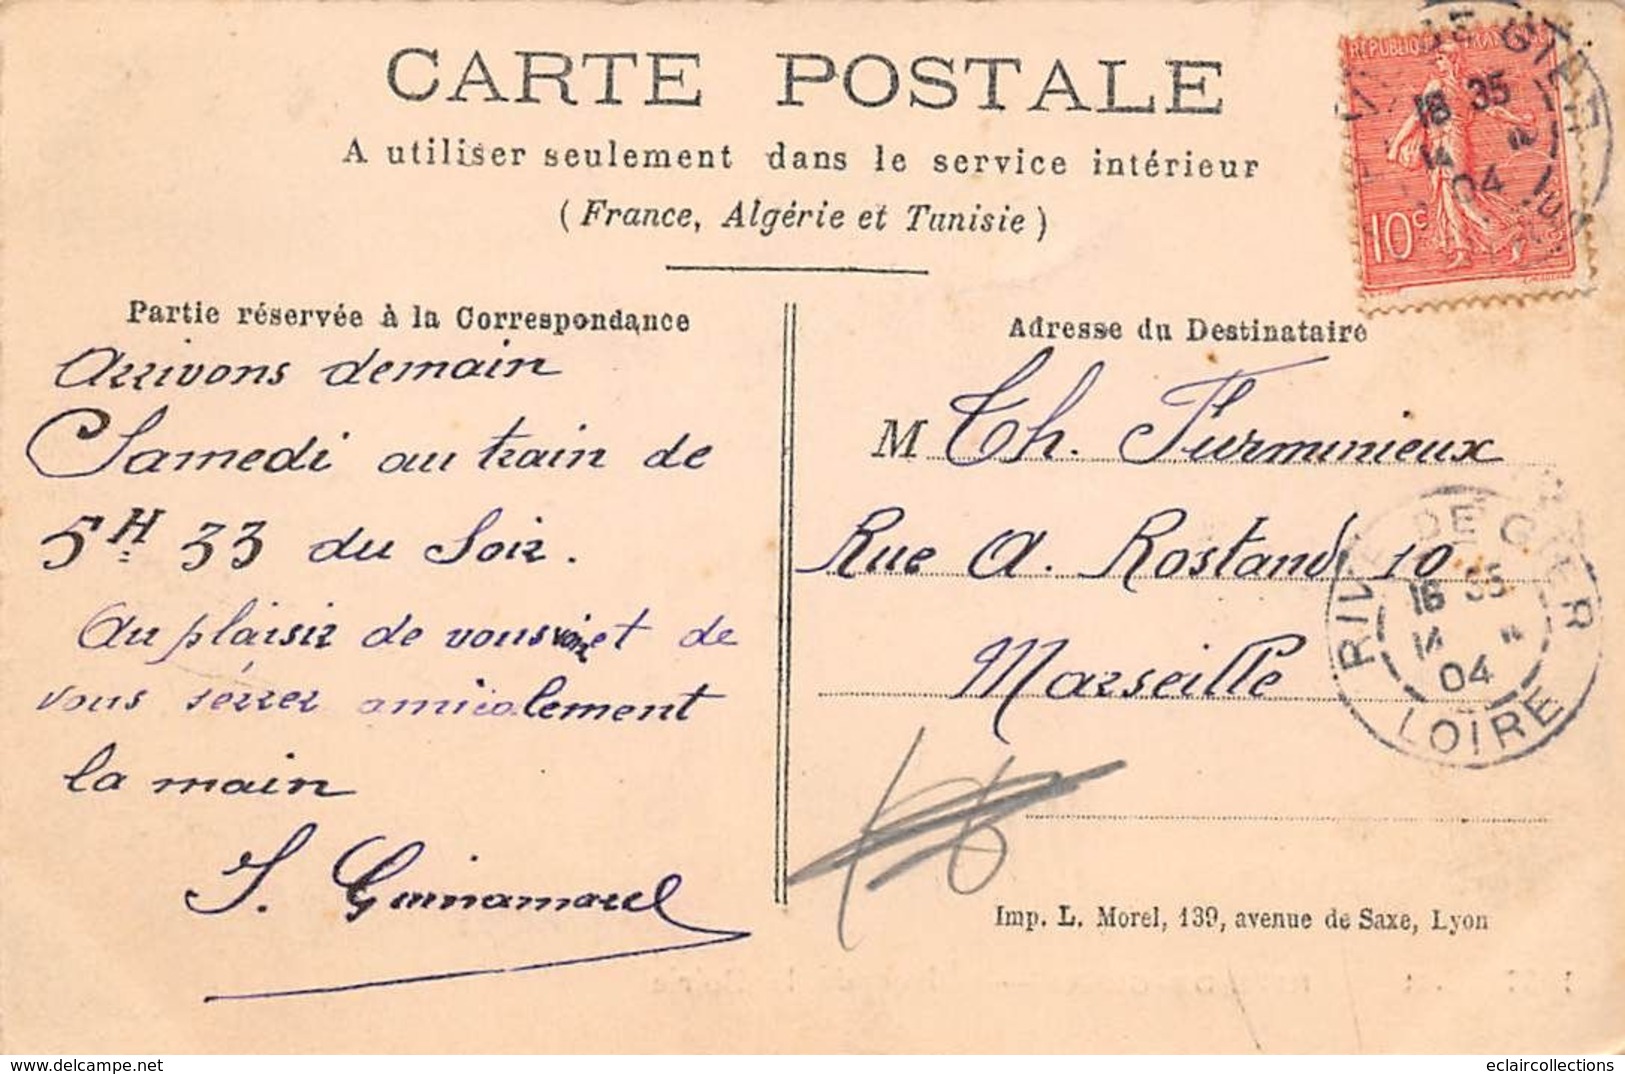 CARTE POSTALE
A utiliser seulement dans le service intérieur
(France, Algérie et Tunisie)
Partie réservée à la Correspondance
Arrivons demain
Samedi au train de
5H 33 du Soir.
Au plaisir de vous voir et de
vous sérrer amicalement
la main
Adresse du Destinataire
M Th. Furminieux
Rue A. Rostand 10
Marseille
Imp. L. Morel, 139, avenue de Saxe, Lyon
10c
16 35
14
04
RIVE DE GIER
16 35
14
04
LOIRE
delcampe.net
eclaircollections